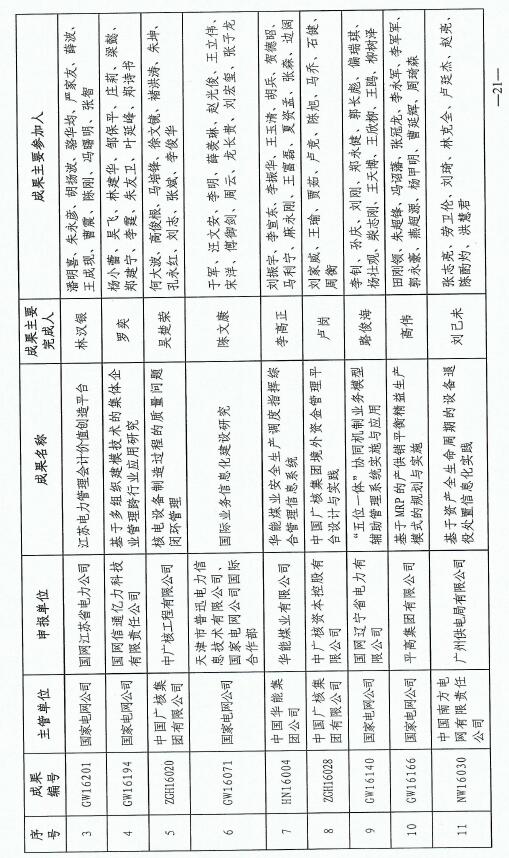 序号 成果编号 主管单位 申报单位 成果名称 成果主要完成人 成果主要参加人
3 GW16201 国家电网公司 国网江苏省电力公司 江苏电力管理会计价值创造平台 林汉银 潘明喜、朱永彦、胡扬波、骆华均、严家友、薛波、
王成现、曹震、陈刚、冯曙明、张智
4 GW16194 国家电网公司 国网信通亿力科技有限责任公司 基于多组织建模技术的集体企业管理跨行业应用研究 罗奕 杨小蕾、吴飞、林建华、邹保平、庄莉、梁懿、
郑建宁、李霆、朱友卫、叶延峰、郑诗书
5 ZGH16020 中国广核集团有限公司 中广核工程有限公司 核电设备制造过程的质量问题闭环管理 吴楚荣 何大波、高俊根、马堦锋、徐文镜、褚洪涛、朱坤、
孔永红、刘志、张斌、李俊华
6 GW16071 国家电网公司 天津市普迅电力信息技术有限公司、国家电网公司国际合作部 国际业务信息化建设研究 陈文康 于军、汪文安、李明、薛羡琳、赵光俊、王立伟、
宋洋、傅御剑、周云、龙长贵、刘宏玺、张子龙
7 HN16004 中国华能集团公司 华能煤业有限公司 华能煤业安全生产调度指挥综合管理信息系统 李高正 刘振宇、李宣东、李振华、王玉清、胡兵、贺德昭、
马利宁、麻永刚、王富磊、夏资孟、张淼、边阔
8 ZGH16028 中国广核集团有限公司 中广核资本控股有限公司 中国广核集团境外资金管理平台设计与实践 卢岗 刘家威、王瑜、贾茹、卢竞、陈旭、马乔、石健、
周衡
9 GW16140 国家电网公司 国网辽宁省电力有限公司 “五位一体”协同机制业务模型辅助管理系统实施与应用 路俊海 李钊、孙庆、刘刚、郑永健、郭长彪、偏瑞琪、
杨壮观、柴志刚、王天博、王欣柳、王鸥、柳树泽
10 GW16166 国家电网公司 平高集团有限公司 基于MRP的产供销平衡精益生产模式的规划与实施 高伟 田刚领、朱超锋、马诏藩、张冠龙、李永军、李军军、
郭永豪、燕超源、杨甲明、曹延辉、周琦森
11 NW16030 中国南方电网有限责任公司 广州供电局有限公司 基于资产全生命周期的设备退役处置信息化实践 刘已未 张志亮、劳卫伦、刘琦、林克全、卢廷杰、赵亮、
陈酌灼、洪慧君
—21—